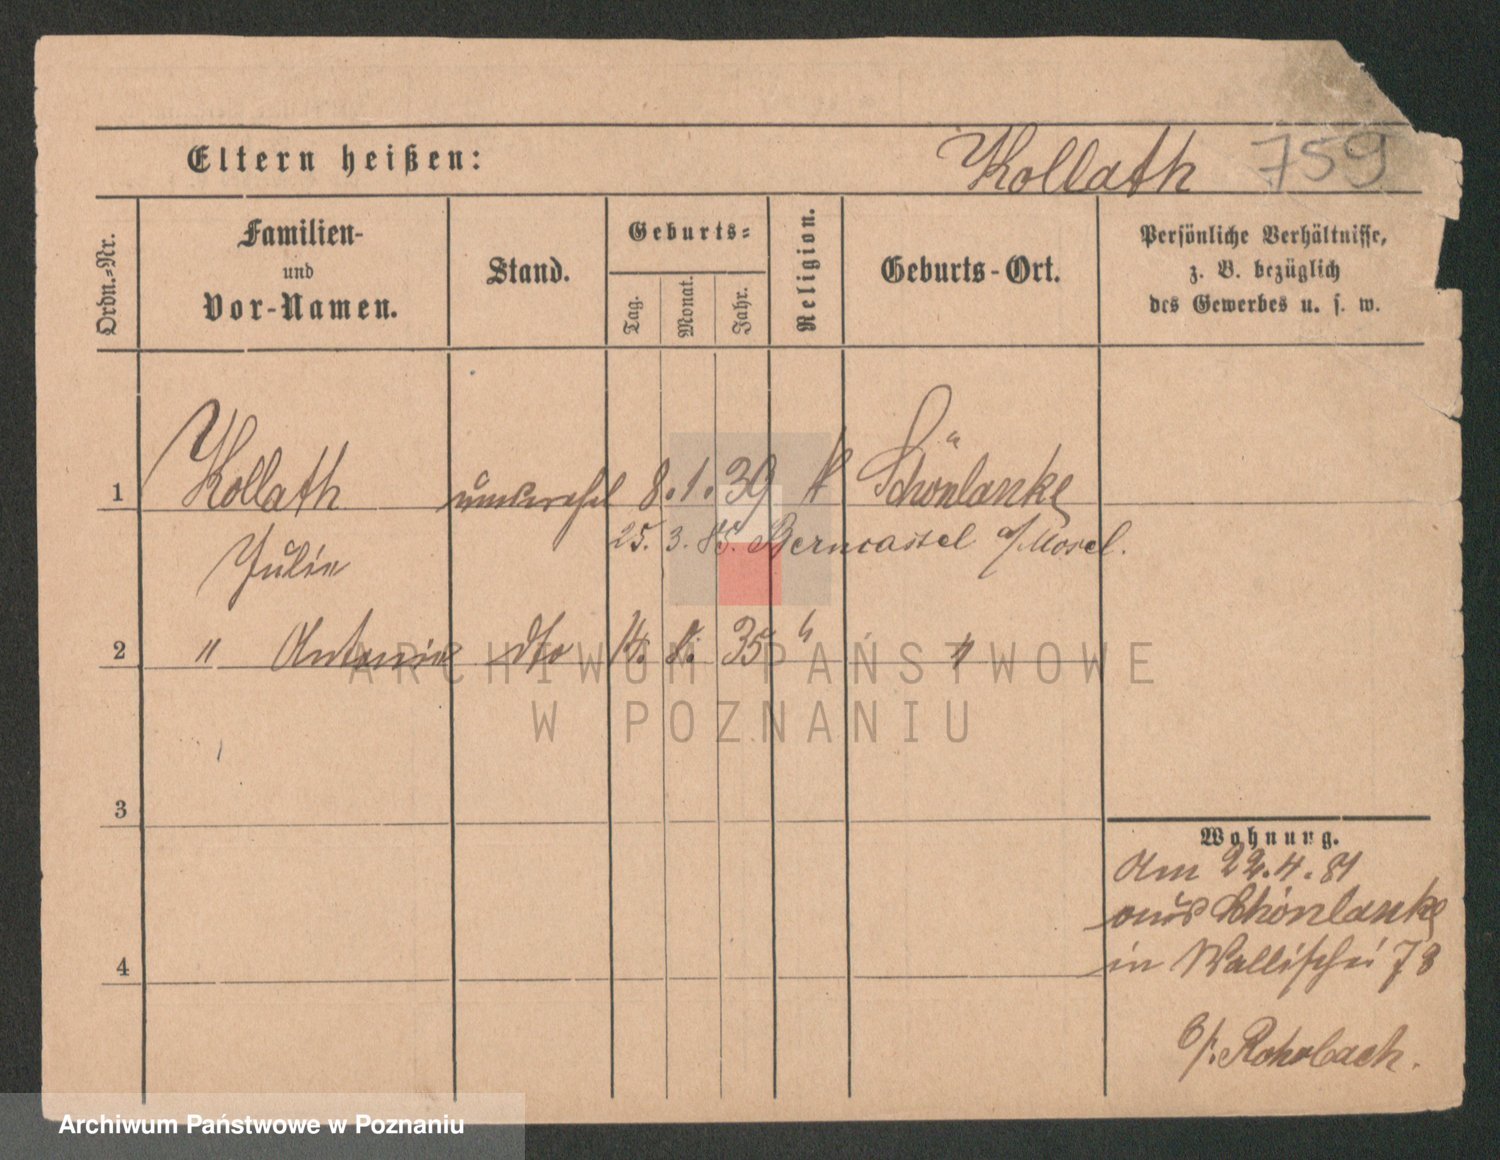 Eltern heißen:
Kollath 759
Ordn.-Nr.
Familien-
und
Vor-Namen.
Stand.
Geburts-
Tag.
Monat.
Jahr.
Religion.
Geburts-Ort.
Persönliche Verhältnisse,
z. B. bezüglich
des Gewerbes u. s. w.
1 Kollath unverehel 8. 1. 39 k Schönlanke
Julie 25. 3. 85. Berncastel a/Mosel.
2 " Antonie dto 14. 8. 35 " "
ARCHIWUM PAŃSTWOWE
W POZNANIU
3
Wohnung.
Am 22.4.81
aus Schönlanke
in Wallischei 73
4
b/. Rohrbach.
Archiwum Państwowe w Poznaniu